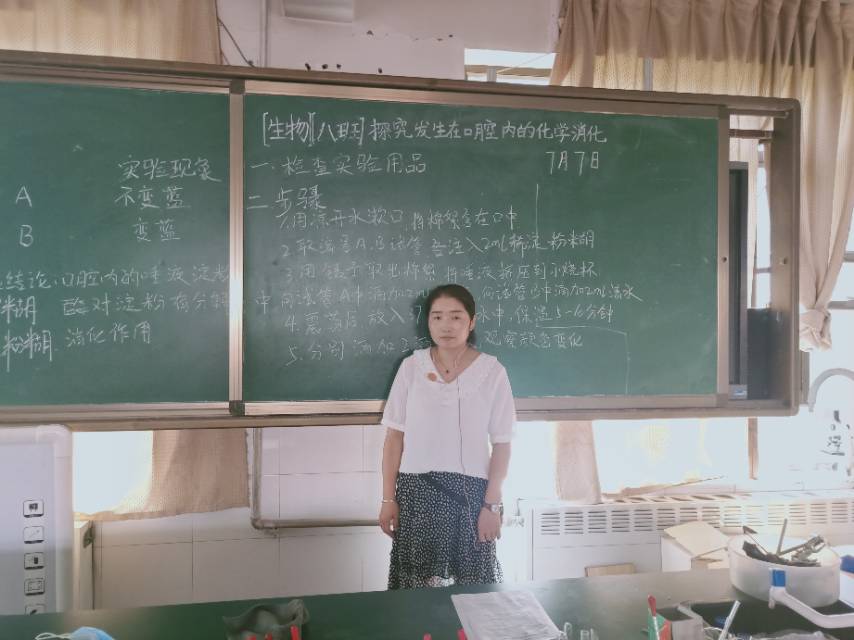 [生物][八班]探究发生在口腔内的化学消化
一.检查实验用品 7月7日
二.步骤
1.用凉开水漱口,将棉絮含在口中
2.取试管A、B试管各注入2mL稀淀粉糊
3.用镊子取出棉絮 将唾液挤压到小烧杯
中 向试管A中滴加2mL 向试管B中滴加2mL清水
4.震荡后 放入37 水中,保温5-10分钟
5.分别滴加 观察颜色变化
实验现象
A 不变蓝
B 变蓝
结论:口腔内的唾液淀粉
酶对淀粉有分解
消化作用
粉糊